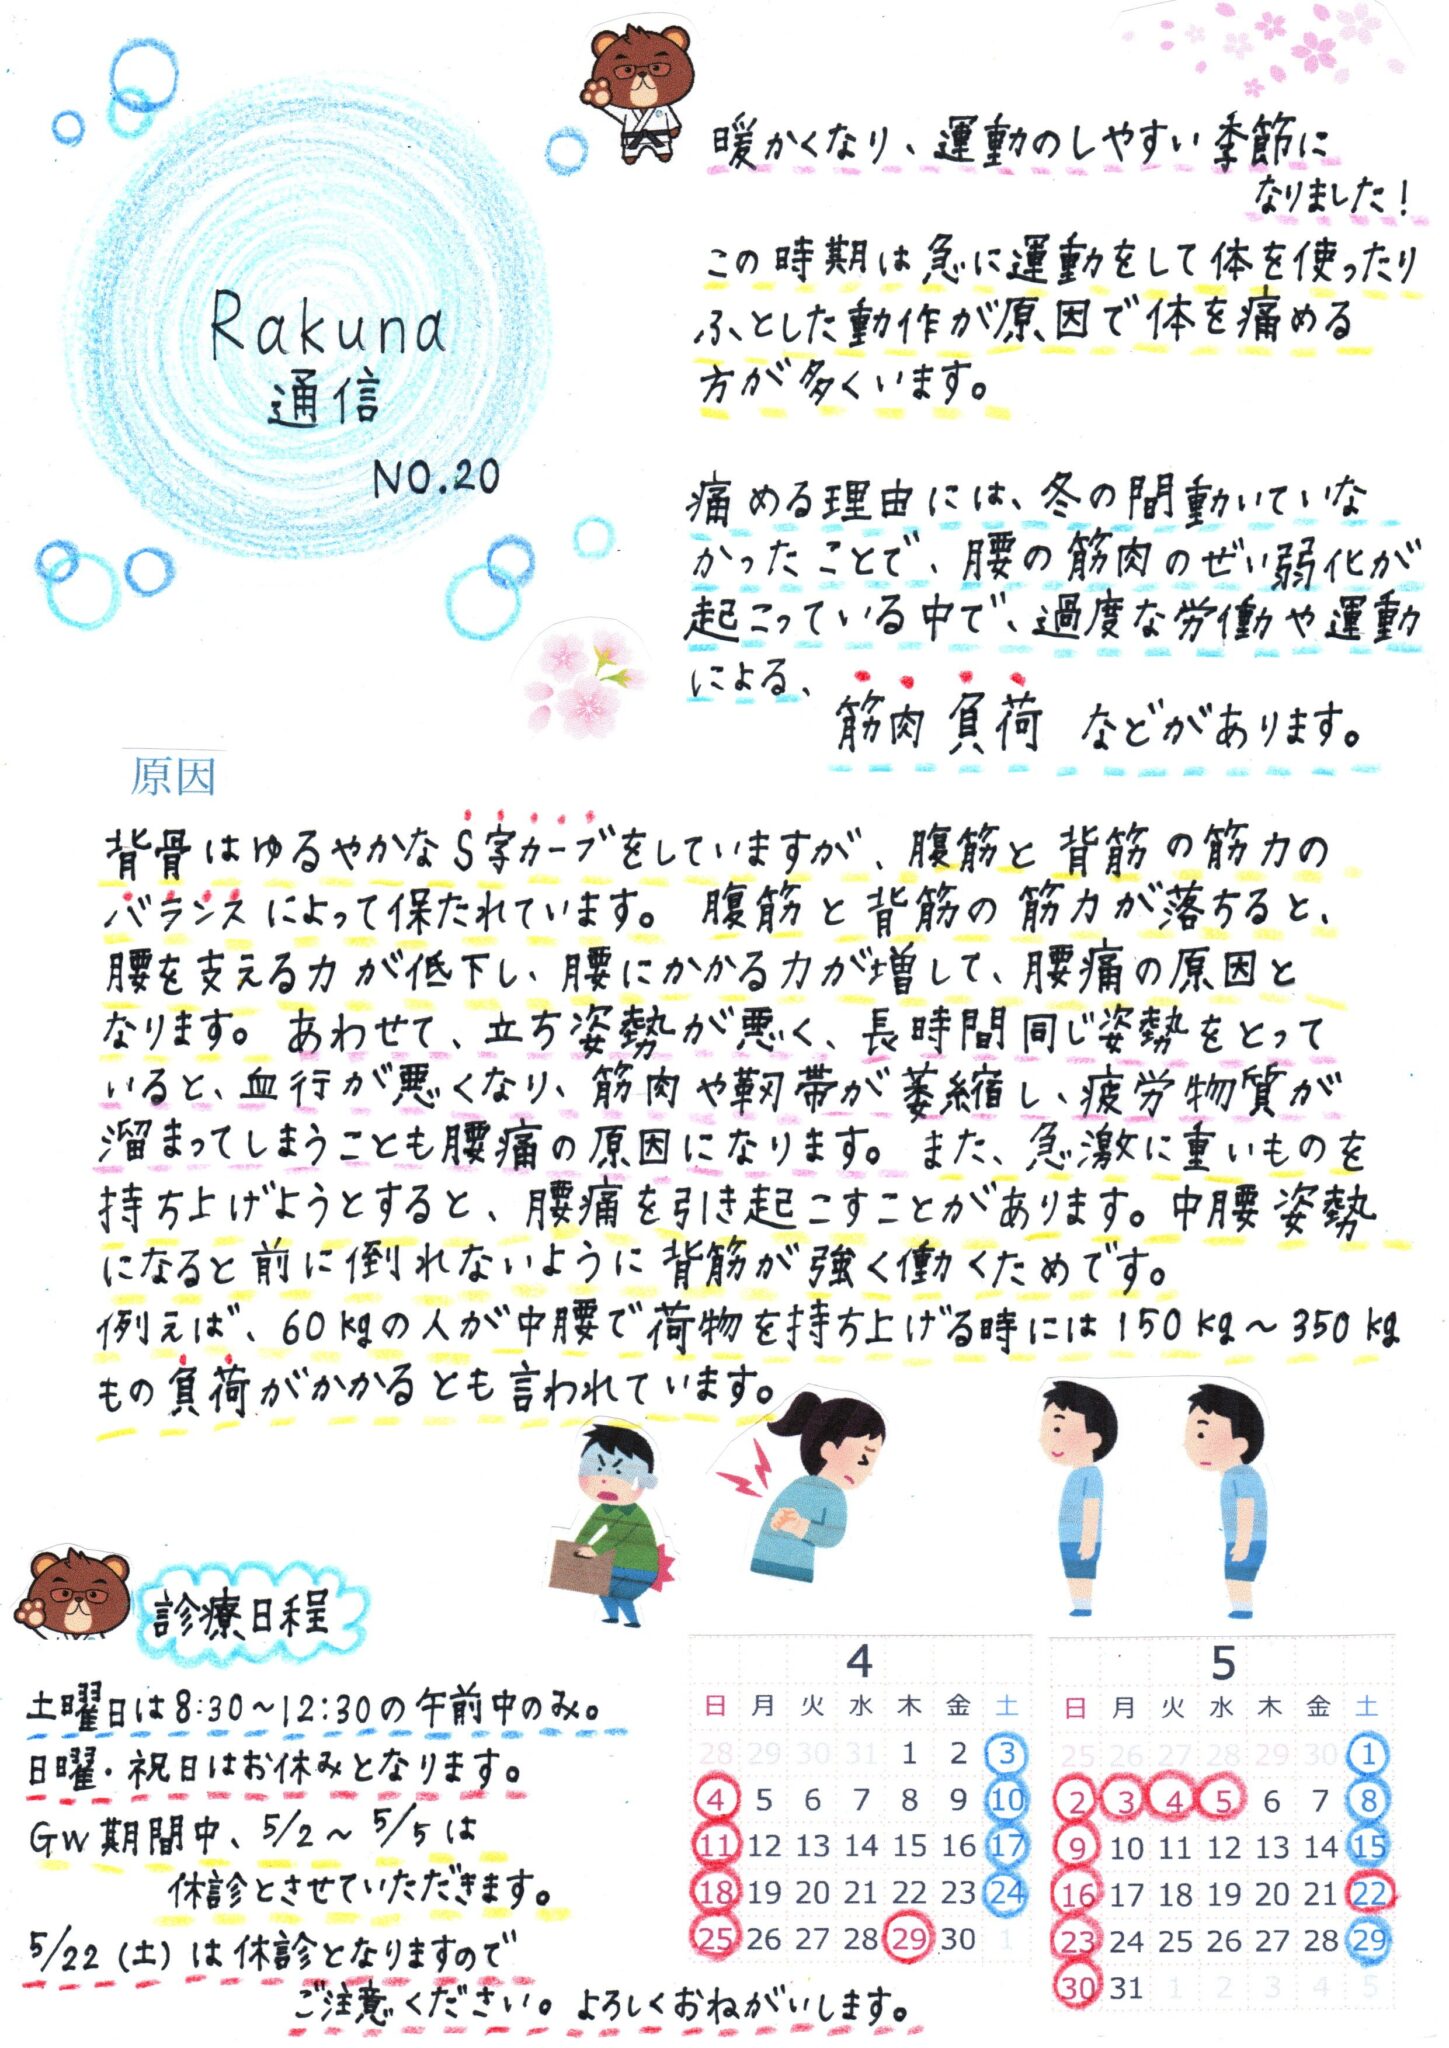 Rakuna
通信
NO.20
暖かくなり、運動のしやすい季節に
なりました!
この時期は急に運動をして体を使ったり
ふとした動作が原因で体を痛める
方が多くいます。
痛める理由には、冬の間動いていな
かったことで、腰の筋肉のぜい弱化が
起こっている中で、過度な労働や運動
による、
筋肉負荷 などがあります。
原因
背骨はゆるやかなS字カーブをしていますが、腹筋と背筋の筋力の
バランスによって保たれています。腹筋と背筋の筋力が落ちると、
腰を支える力が低下し、腰にかかる力が増して、腰痛の原因と
なります。あわせて、立ち姿勢が悪く、長時間同じ姿勢をとって
いると、血行が悪くなり、筋肉や靭帯が萎縮し、疲労物質が
溜まってしまうことも腰痛の原因になります。また、急激に重いものを
持ち上げようとすると、腰痛を引き起こすことがあります。中腰姿勢
になると前に倒れないように背筋が強く働くためです。
例えば、60kgの人が中腰で荷物を持ち上げる時には150kg～350kg
もの負荷がかかるとも言われています。
診療日程
土曜日は8:30～12:30の午前中のみ。
日曜・祝日はお休みとなります。
GW期間中、5/2～5/5は
休診とさせていただきます。
5/22(土)は休診となりますので
ご注意ください。よろしくおねがいします。
4
日 月 火 水 木 金 土
28 29 30 31 1 2 3
4 5 6 7 8 9 10
11 12 13 14 15 16 17
18 19 20 21 22 23 24
25 26 27 28 29 30 1
5
日 月 火 水 木 金 土
25 26 27 28 29 30 1
2 3 4 5 6 7 8
9 10 11 12 13 14 15
16 17 18 19 20 21 22
23 24 25 26 27 28 29
30 31 1 2 3 4 5